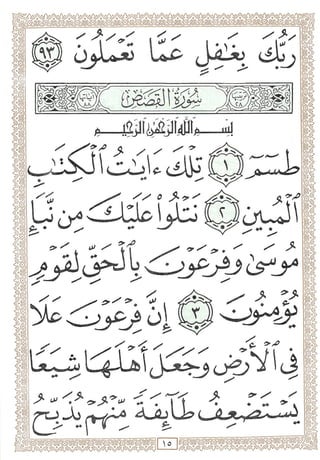 رَبُّكَ بِغَٰفِلٍ عَمَّا تَعْمَلُونَ ٩٣
سُورَةُ القَصَصِ
بِسْمِ اللَّهِ الرَّحْمَٰنِ الرَّحِيمِ
طسٓمٓ ١ تِلْكَ ءَايَٰتُ ٱلْكِتَٰبِ
ٱلْمُبِينِ ٢ نَتْلُوا۟ عَلَيْكَ مِن نَّبَإِ
مُوسَىٰ وَفِرْعَوْنَ بِٱلْحَقِّ لِقَوْمٍ
يُؤْمِنُونَ ٣ إِنَّ فِرْعَوْنَ عَلَا
فِى ٱلْأَرْضِ وَجَعَلَ أَهْلَهَا شِيَعًا
يَسْتَضْعِفُ طَآئِفَةً مِّنْهُمْ يُذَبِّحُ
١٥